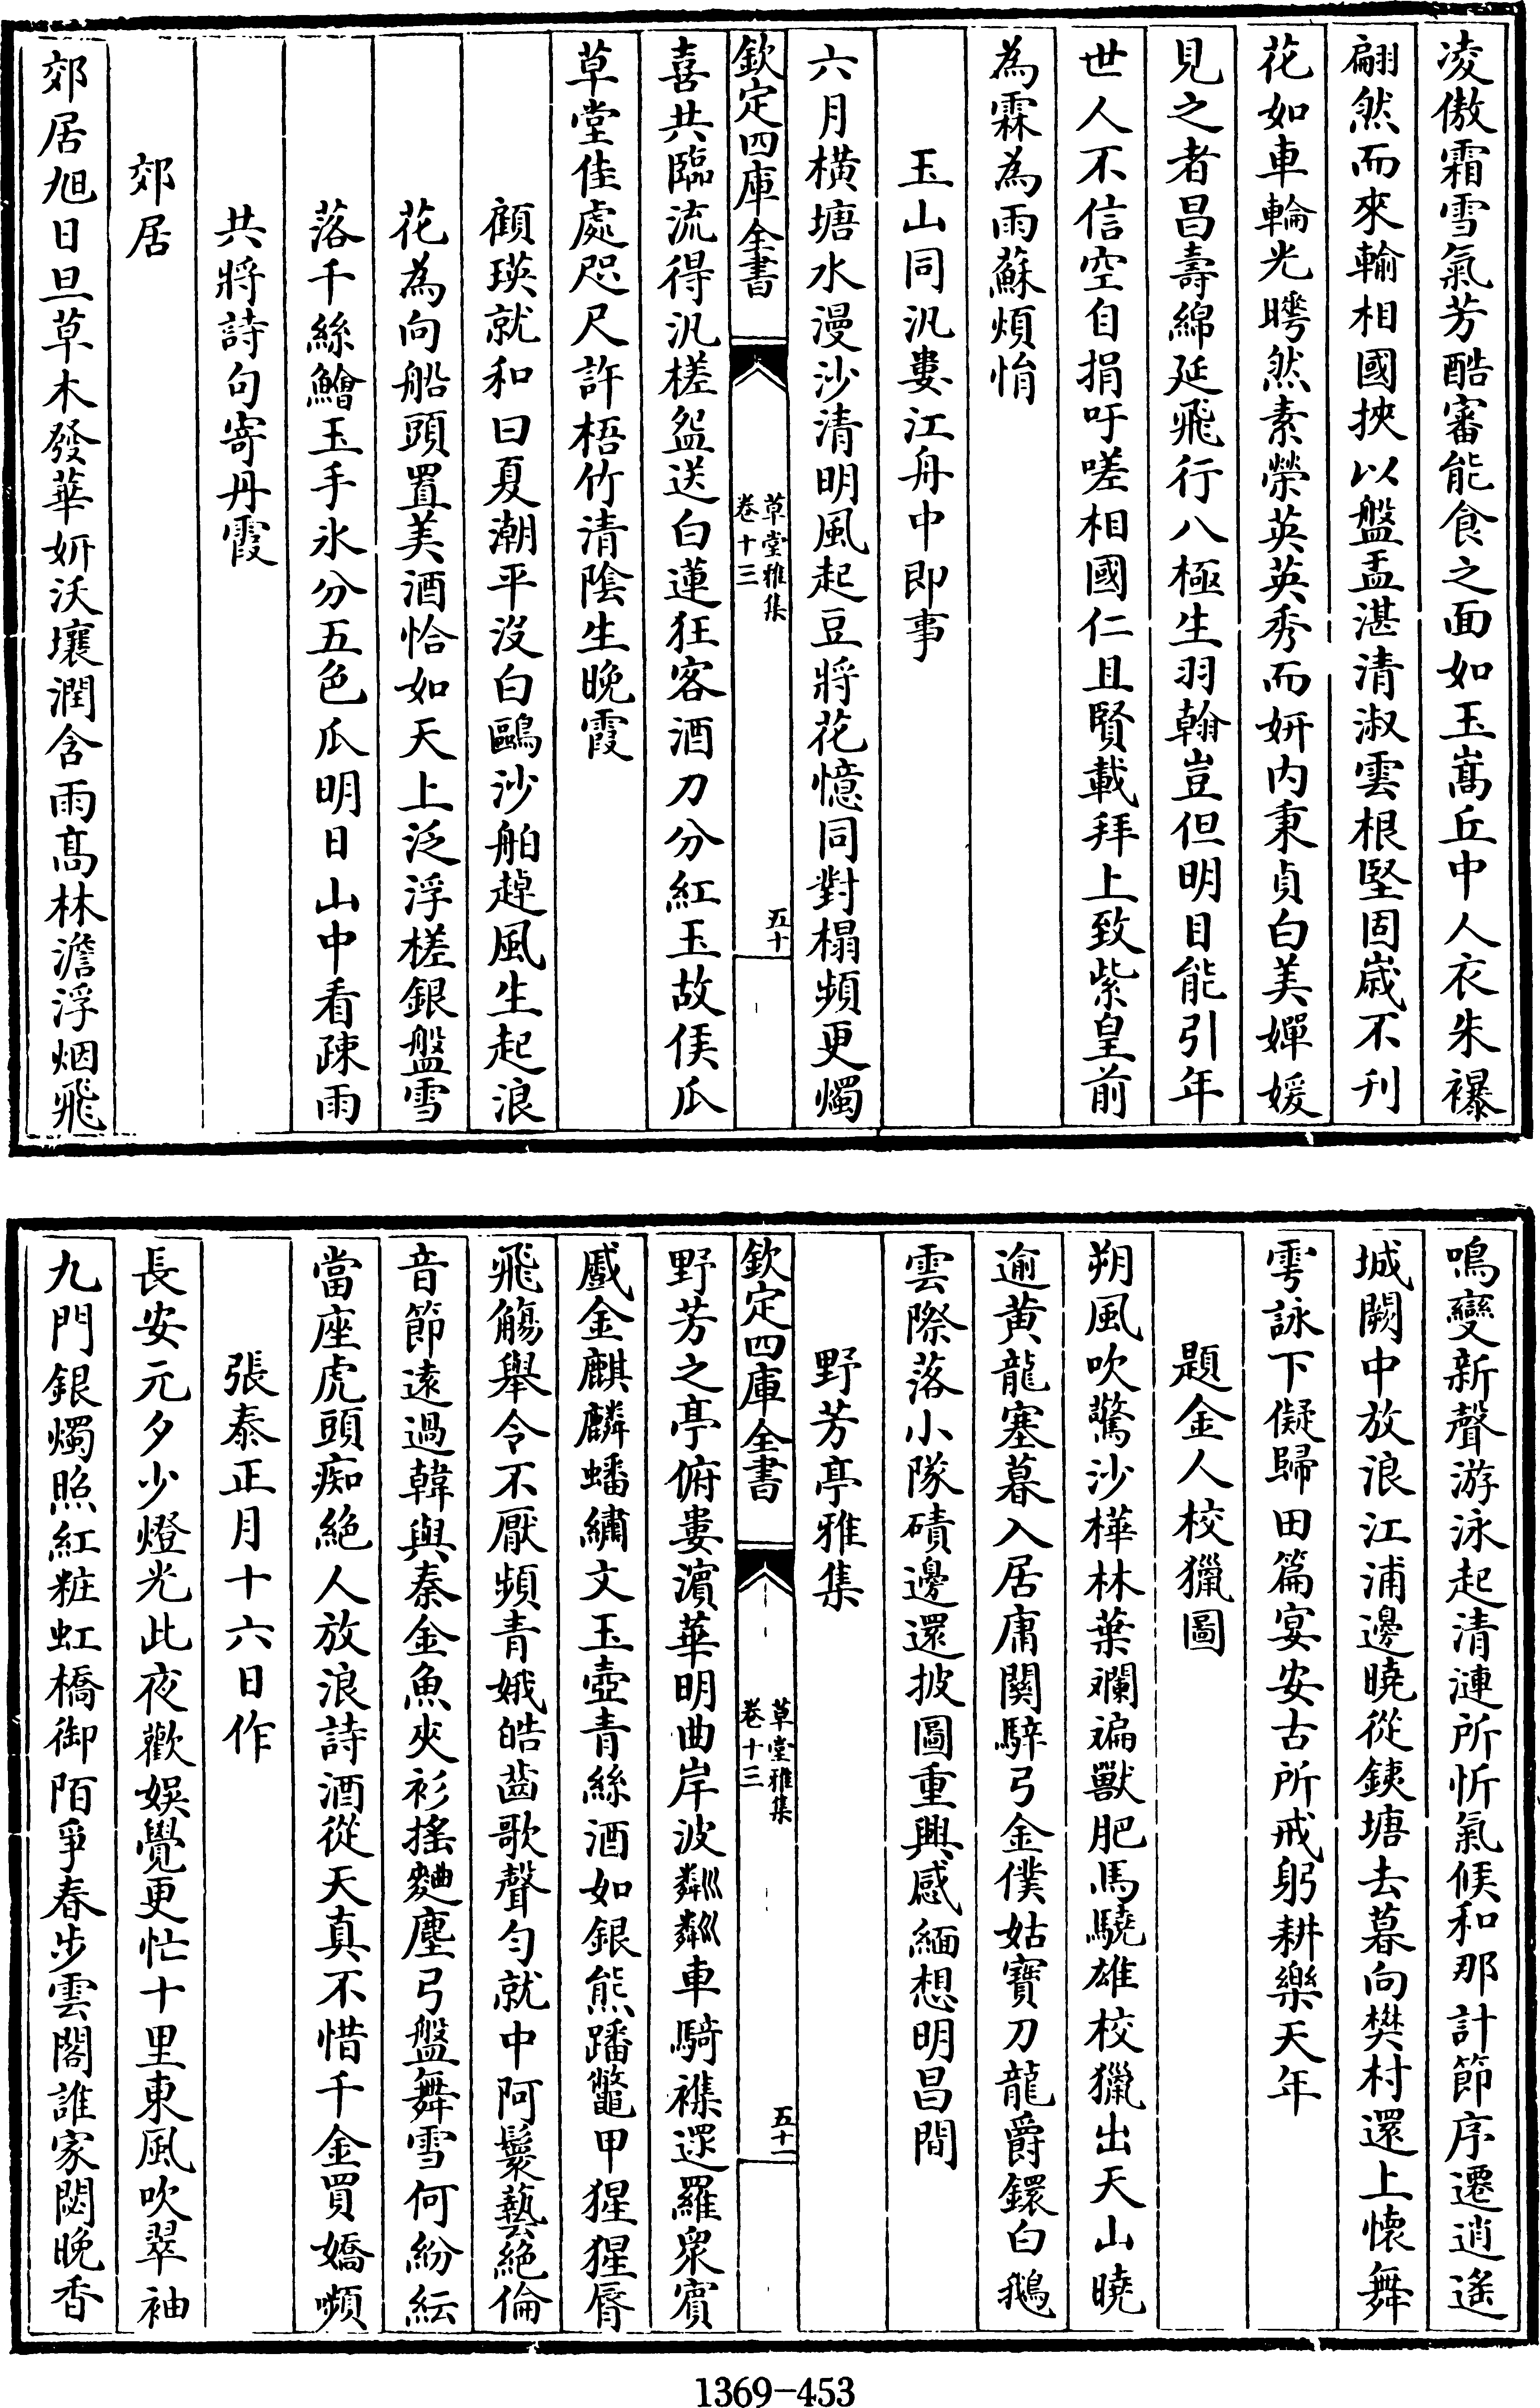 凌傲霜雪氣芳酷審能食之面如玉嵩丘中人衣朱襮
翩然而來輸相國挾以盤盂湛清淑雲根堅固歲不刋
花如車輪光瞱然素榮英英秀而妍内秉貞白美嬋媛
見之者昌壽綿延飛行八極生羽翰豈但明目能引年
世人不信空自捐吁嗟相國仁且賢載拜上致紫皇前
為霖為雨蘇煩悁
玉山同汎婁江舟中即事
六月橫塘水漫沙清明風起豆將花憶同對榻頻更燭
欽定四庫全書
草堂雅集
卷十三
五十
喜共臨流得汎槎盌送白蓮狂客酒刀分紅玉故侯瓜
草堂佳處咫尺許梧竹清陰生晚霞
顧瑛就和曰夏潮平沒白鷗沙舶趠風生起浪
花為向船頭置美酒恰如天上泛浮槎銀盤雪
落千絲鱠玉手氷分五色瓜明日山中看疎雨
共將詩句寄丹霞
郊居
郊居旭日旦草木發華妍沃壤潤含雨髙林澹浮烟飛
鳴變新聲游泳起清漣所忻氣候和那計節序遷逍遙
城闕中放浪江浦邊曉從銕塘去暮向樊村還上懷舞
雩詠下儗歸田篇宴安古所戒躬耕樂天年
題金人校獵圖
朔風吹驚沙樺林葉斕斒獸肥馬驍雄校獵出天山曉
逾黄龍塞暮入居庸關騂弓金僕姑寶刀龍爵鐶白鵝
雲際落小隊磧邊還披圖重興感緬想明昌間
野芳亭雅集
欽定四庫全書
草堂雅集
卷十三
五十一
野芳之亭俯婁濆華明曲岸波粼粼車騎襍遝羅衆賓
戲金麒麟蟠繡文玉壺青絲酒如銀熊蹯鼈甲猩猩脣
飛觴舉令不厭頻青娥皓齒歌聲勻就中阿鬟藝絶倫
音節遠過韓與秦金魚夾衫搖麴塵弓盤舞雪何紛紜
當座虎頭痴絶人放浪詩酒從天真不惜千金買嬌嚬
張泰正月十六日作
長安元夕少燈光此夜歡娯覺更忙十里東風吹翠袖
九門銀燭照紅粧虹橋御陌爭春步雲閣誰家閟晚香
1369-453